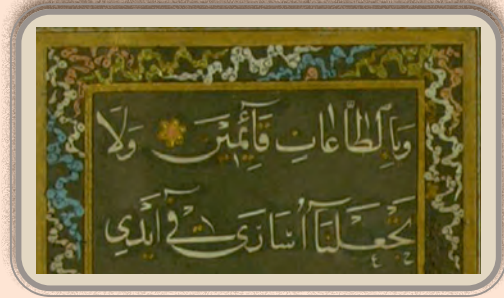 وَبِالطَّاعَاتِ قَآئِمِيْنَ وَلَا
تَجْعَلْنَآ اُسَارٰى فٓيْ اَيْدِي